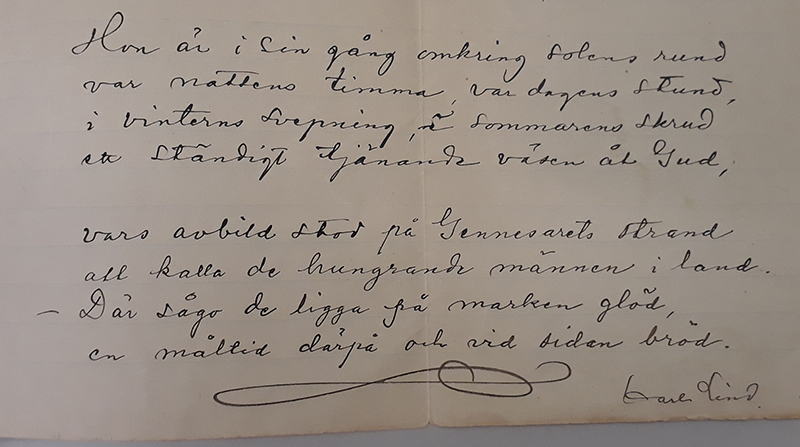 Hon är i sin gång omkring solens rund
var nattens timma, var dagens stund,
i vinterns svepning, i sommarens skrud
ett ständigt tjänande väsen åt Gud,
vars avbild stod på Gennesarets strand
att kalla de hungrande männen i land.
– Där sågo de ligga på marken glöd,
en måltid därpå och vid sidan bröd.
Karl Lind.